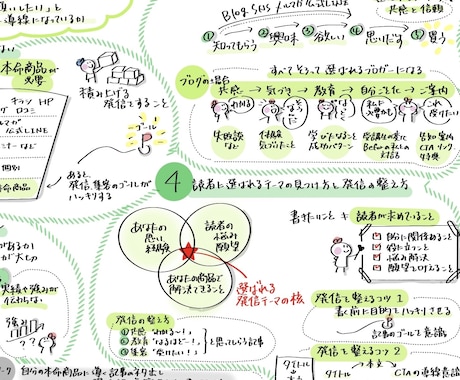 買いしたい」と
導線になっているか
Blog SNS メルマガ 公式LINEなど
共感と信頼
① ② ③ ④ ⑤
知ってもらう 興味 欲しい 思いだす 買う
すべてそろって選ばれるブロガーになる
ブログの場合
共感 → 気づき → 教育 → 自分ごと化 → ご案内
わかる
失敗談
など
体験談
気づいたこと
学びになること
成功パターン
告知 案内
CTA リンク
特典
本命商品が
必要
積み上げる
発信をすること
HP
ブログ 口コミ
公式LINE
セミナーなど
個別
本命商品
ゴール
あると
発信、集客のゴールが
ハッキリする
4 読者に選ばれるテーマの見つけ方と発信の整え方
あなたの
思い
経験
読者の
悩み
願望
あなたの商品で
解決できること
選ばれる
発信テーマの核
書きたいこと ≠ 読者が求めていること
自分に関係あること
役に立つこと
悩み解決
願望を叶えること
発信の整え方
① 共感 「わかる〜!」
② 教育 「なるほどー!」
③ 集客 「受けたい!」
と思ってもらう記事
発信を整えるコツ 1
書く前に目的をハッキリさせる
記事のゴールを意識
発信を整えるコツ 2
タイトル → 本文 →
CTAの導線意識
があるか
が大切
実績や強みが
伝わらない
強み!
自分の本命商品に導く記事の